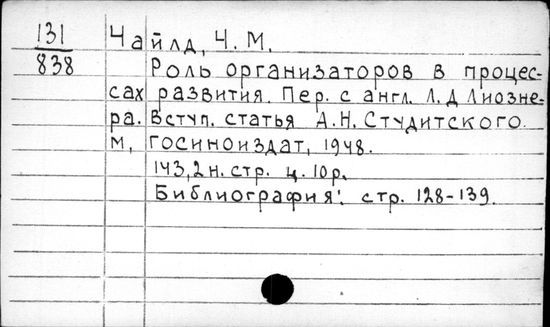 131 Чайлд, Ч. М.
838 Роль организаторов в процес-
сах развития. Пер. с англ. Л. Д Лиозне-
ра. Вступ. статья А. Н. Студитского.
М, Госиноиздат, 1948.
143, 2 н. стр. ц. 10 р.
Библиография: стр. 128-139.